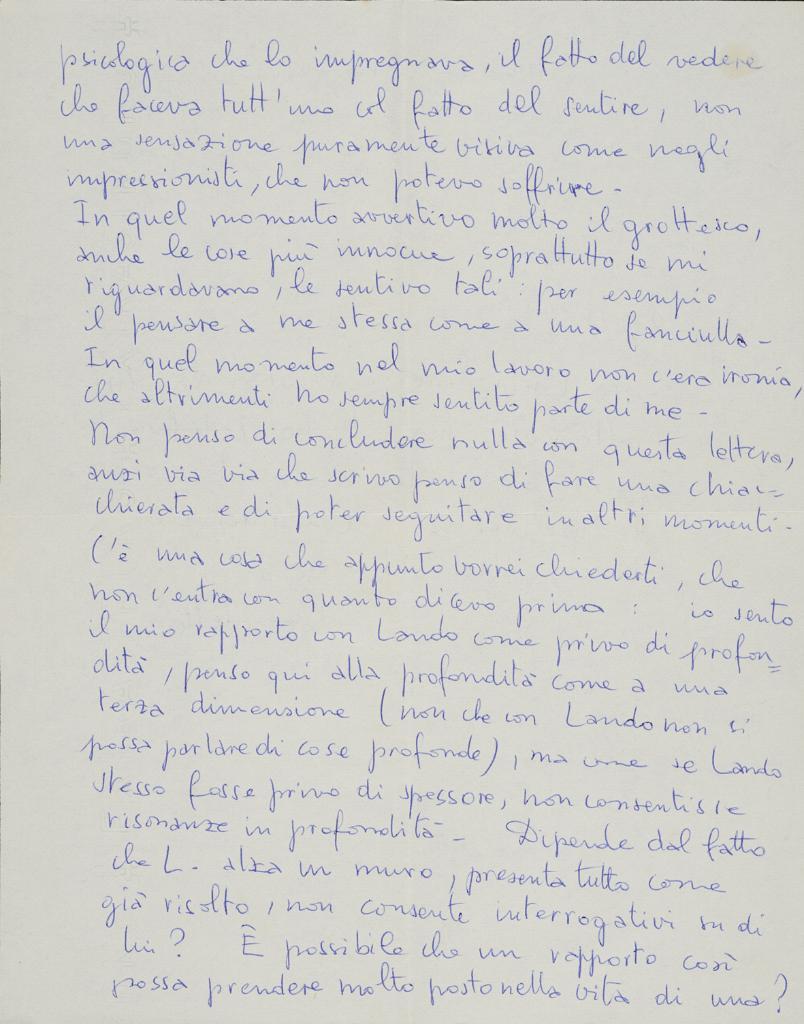 psicologica che lo impregnava, il fatto del vedere
che faceva tutt'uno col fatto del sentire, non
una sensazione puramente visiva come negli
impressionisti, che non potevo soffrire -
In quel momento avvertivo molto il grottesco,
anche le cose più innocue, soprattutto se mi
riguardavano, le sentivo tali : per esempio
il pensare a me stessa come a una fanciulla -
In quel momento nel mio lavoro non c'era ironia,
che altrimenti ho sempre sentito parte di me -
Non penso di concludere nulla con questa lettera,
anzi via via che scrivo penso di fare una chiac=
chierata e di poter seguitare in altri momenti -
C'è una cosa che appunto vorrei chiederti, che
non c'entra con quanto dicevo prima : io sento
il mio rapporto con Lando come privo di profon=
dità, penso qui alla profondità come a una
terza dimensione (non che con Lando non si
possa parlare di cose profonde), ma come se Lando
stesso fosse privo di spessore, non consentisse
risonanze in profondità - Dipende dal fatto
che L. alza un muro, presenta tutto come
già risolto, non consente interrogativi su di
lui? È possibile che un rapporto così
possa prendere molto posto nella vita di una?